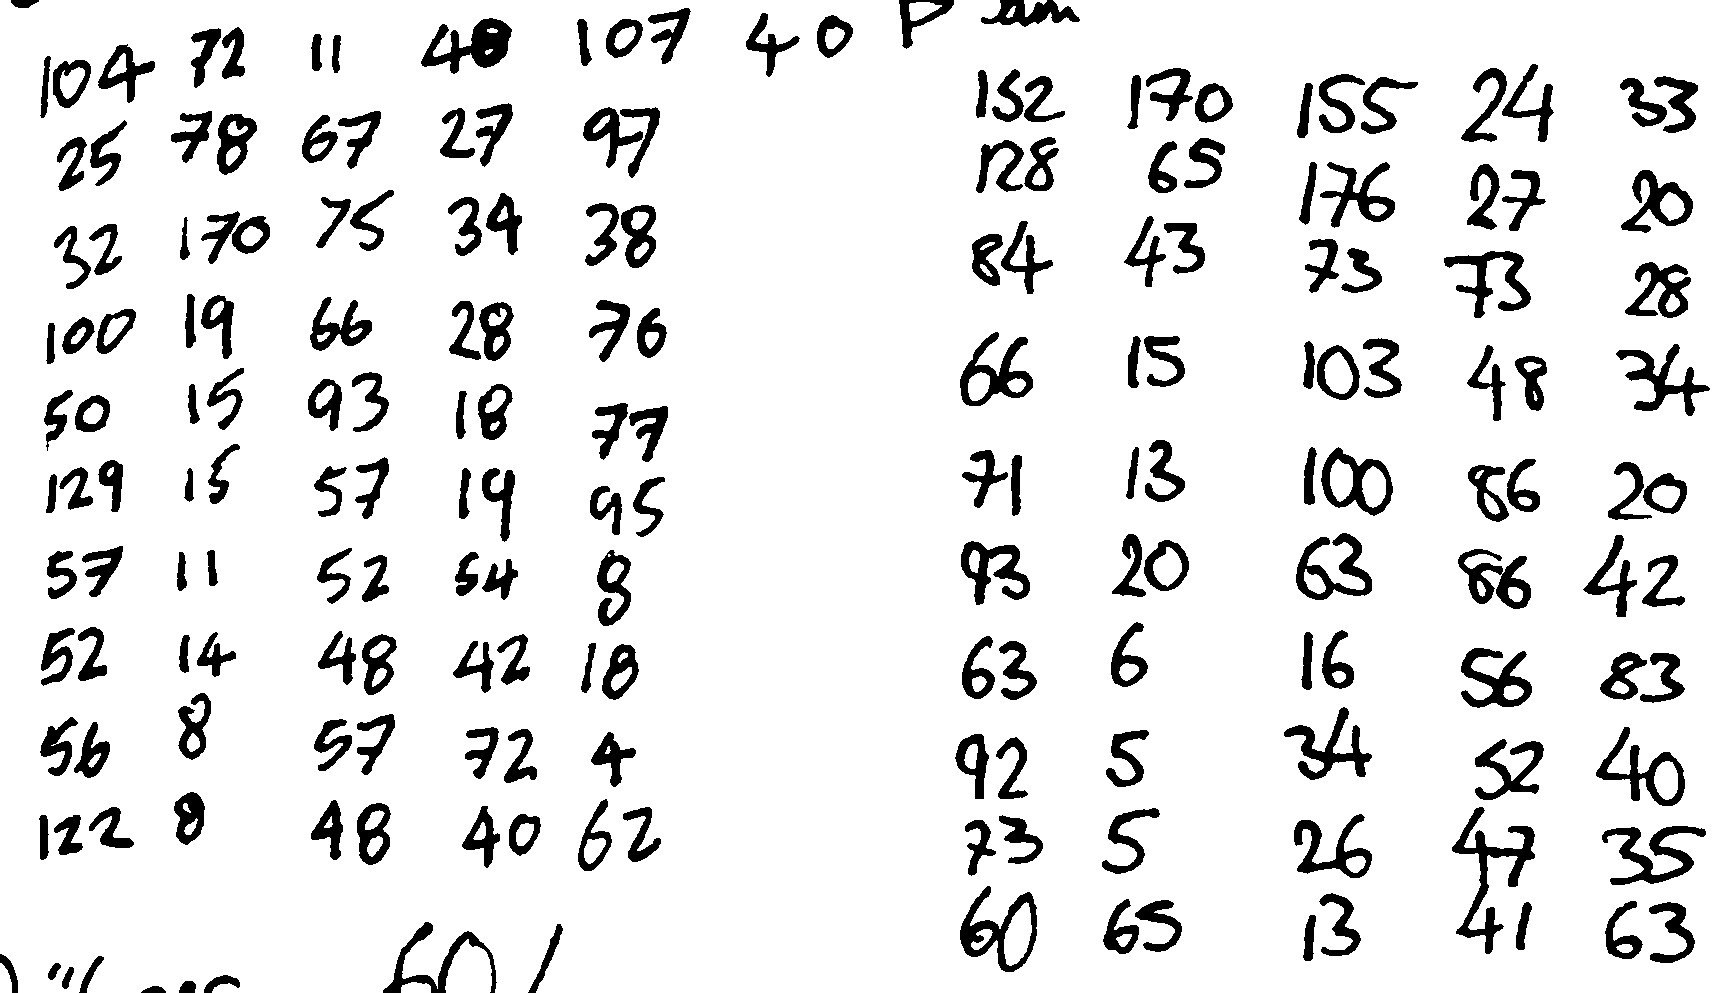 104 72 11 48 107 40
25 78 67 27 97
32 170 75 34 38
100 19 66 28 76
50 15 93 18 77
129 15 57 19 95
57 11 52 54 8
52 14 48 42 18
56 8 57 72 4
122 8 48 40 62
152 170 155 24 33
128 65 176 27 20
84 43 73 73 28
66 15 103 48 34
71 13 100 86 20
93 20 63 86 42
63 6 16 56 83
92 5 34 52 40
73 5 26 47 35
60 65 13 41 63